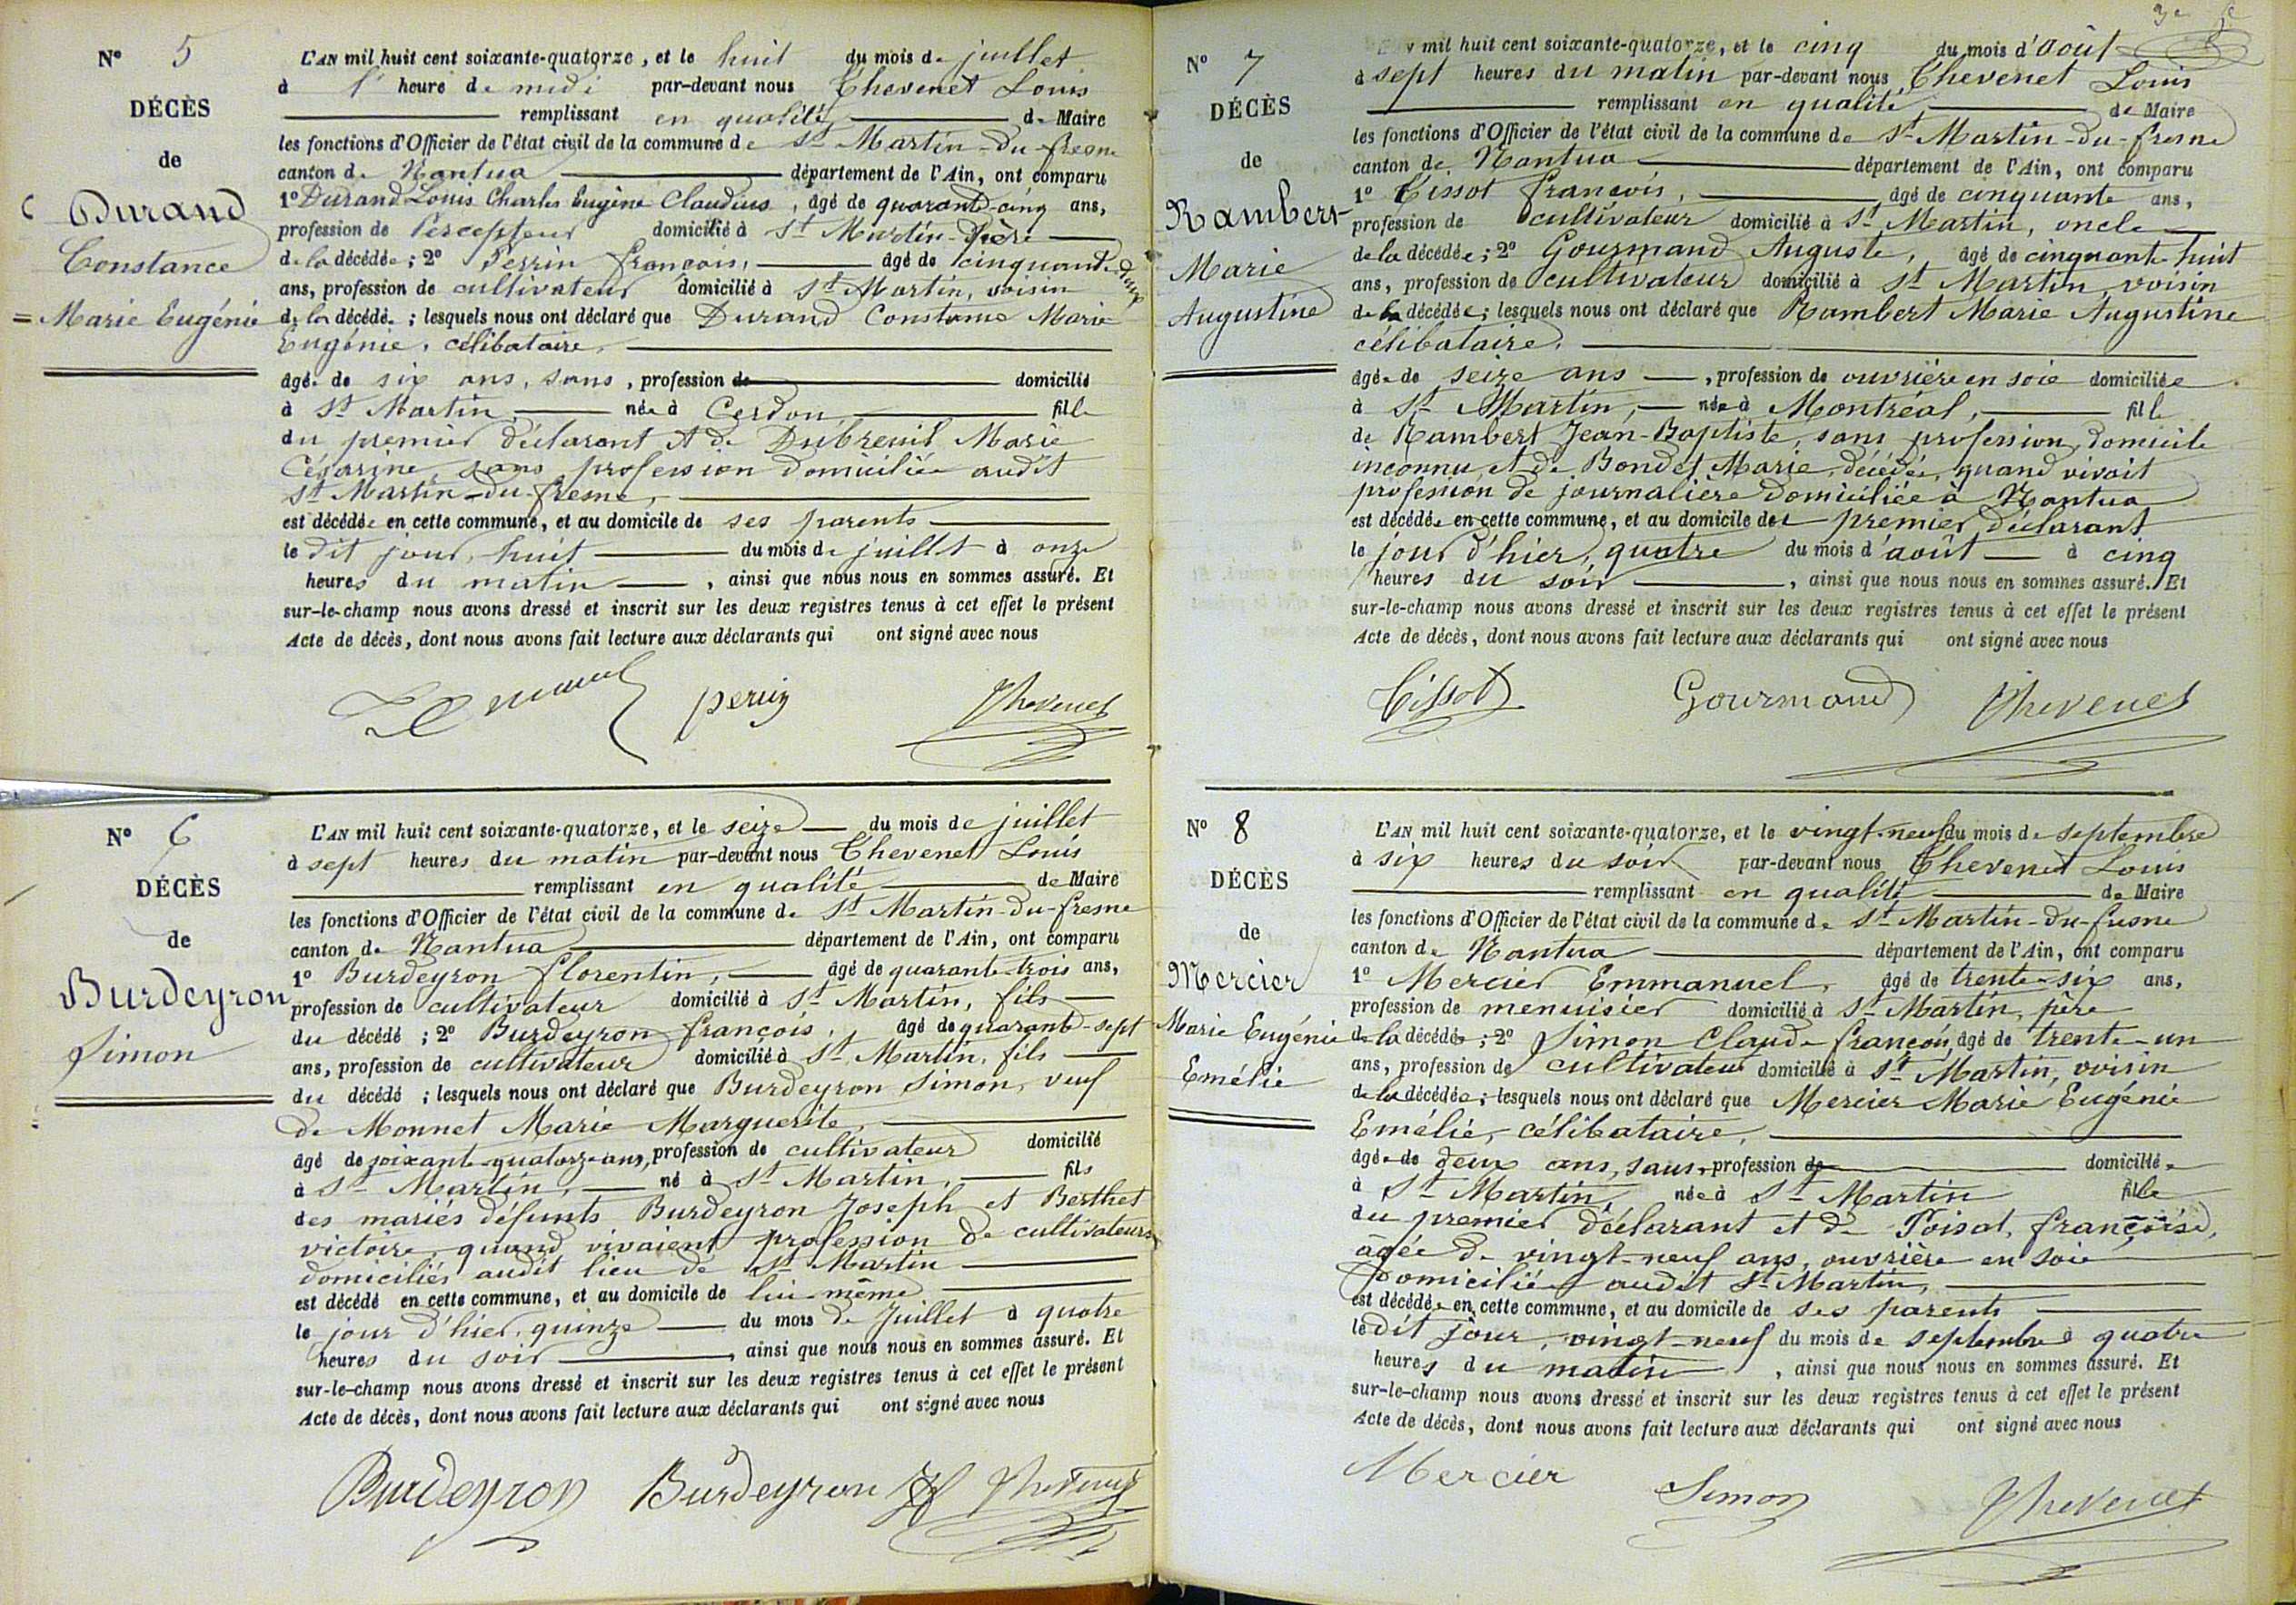 N° 5
DÉCÈS
de
Durand
Constance
Marie Eugénie
L'AN mil huit cent soixante-quatorze, et le huit du mois de juillet
à 1 heure de midi par-devant nous Thevenet Louis
remplissant en qualité de Maire
les fonctions d'Officier de l'état civil de la commune de St Martin-du-fresne
canton de Nantua département de l'Ain, ont comparu
1° Durand Louis Charles Eugène Claudius, âgé de quarante-cinq ans,
profession de Percepteur domicilié à St Martin-père
de la décédée; 2° Perrin françois, âgé de cinquante-deux
ans, profession de cultivateur domicilié à St Martin, voisin
de la décédée; lesquels nous ont déclaré que Durand Constance Marie
Eugénie, célibataire,
âgée de six ans, sans, profession de domicilié
à St Martin, née à Cerdon, fille
du premier déclarant et de Dubreuil Marie
Césarine, sans profession domiciliée audit
St Martin-du-fresne,
est décédée en cette commune, et au domicile de ses parents
le dit jour, huit du mois de juillet à onze
heures du matin, ainsi que nous nous en sommes assuré. Et
sur-le-champ nous avons dressé et inscrit sur les deux registres tenus à cet effet le présent
Acte de décès, dont nous avons fait lecture aux déclarants qui ont signé avec nous
perrin Thevenet
N° 6
DÉCÈS
de
Burdeyron
Simon
L'AN mil huit cent soixante-quatorze, et le seize du mois de juillet
à sept heures du matin par-devant nous Thevenet Louis
remplissant en qualité de Maire
les fonctions d'Officier de l'état civil de la commune de St Martin-du-fresne
canton de Nantua département de l'Ain, ont comparu
1° Burdeyron florentin, âgé de quarante-trois ans,
profession de cultivateur domicilié à St Martin, fils
du décédé; 2° Burdeyron françois, âgé de quarante-sept
ans, profession de cultivateur domicilié à St Martin, fils
du décédé; lesquels nous ont déclaré que Burdeyron Simon, veuf
de Monnet Marie Marguerite,
âgé de soixante-quatorze ans, profession de cultivateur domicilié
à St Martin, né à St Martin, fils
des mariés défunts Burdeyron Joseph et Berthet
victoire, quand vivaient profession de cultivateurs
domiciliés audit lieu de St Martin
est décédé en cette commune, et au domicile de lui-même
le jour d'hier, quinze du mois de Juillet à quatre
heures du soir, ainsi que nous nous en sommes assuré. Et
sur-le-champ nous avons dressé et inscrit sur les deux registres tenus à cet effet le présent
Acte de décès, dont nous avons fait lecture aux déclarants qui ont signé avec nous
Burdeyron Burdeyron Thevenet
N° 7
DÉCÈS
de
Rambert
Marie
Augustine
L'AN mil huit cent soixante-quatorze, et le cinq du mois d'Août
à sept heures du matin par-devant nous Thevenet Louis
remplissant en qualité de Maire
les fonctions d'Officier de l'état civil de la commune de St Martin-du-fresne
canton de Nantua département de l'Ain, ont comparu
1° Tissot françois, âgé de cinquante ans,
profession de cultivateur domicilié à St Martin, oncle
de la décédée; 2° Gourmand Auguste, âgé de cinquante-huit
ans, profession de cultivateur domicilié à St Martin, voisin
de la décédée; lesquels nous ont déclaré que Rambert Marie Augustine
célibataire,
âgée de seize ans, profession de ouvrière en soie domiciliée
à St Martin, née à Montréal, fille
de Rambert Jean-Baptiste, sans profession, domicile
inconnu, et de Bondet Marie, décédée, quand vivait
profession de journalière domiciliée à Nantua
est décédée en cette commune, et au domicile de premier déclarant
le jour d'hier, quatre du mois d'août à cinq
heures du soir, ainsi que nous nous en sommes assuré. Et
sur-le-champ nous avons dressé et inscrit sur les deux registres tenus à cet effet le présent
Acte de décès, dont nous avons fait lecture aux déclarants qui ont signé avec nous
Tissot Gourmand Thevenet
N° 8
DÉCÈS
de
Mercier
Marie Eugénie
Emélie
L'AN mil huit cent soixante-quatorze, et le vingt-neuf du mois de septembre
à six heures du soir par-devant nous Thevenet Louis
remplissant en qualité de Maire
les fonctions d'Officier de l'état civil de la commune de St Martin-du-fresne
canton de Nantua département de l'Ain, ont comparu
1° Mercier Emmanuel, âgé de trente-six ans,
profession de menuisier domicilié à St Martin, père
de la décédée; 2° Simon Claude françois, âgé de trente-un
ans, profession de cultivateur domicilié à St Martin, voisin
de la décédée; lesquels nous ont déclaré que Mercier Marie Eugénie
Emélie, célibataire,
âgée de deux ans, sans, profession de domiciliée
à St Martin, née à St Martin fille
du premier déclarant et de Poisat, françoise,
âgée de vingt-neuf ans, ouvrière en soie
domiciliée audit St Martin,
est décédée en cette commune, et au domicile de ses parents
le dit jour, vingt-neuf du mois de septembre à quatre
heures du matin, ainsi que nous nous en sommes assuré. Et
sur-le-champ nous avons dressé et inscrit sur les deux registres tenus à cet effet le présent
Acte de décès, dont nous avons fait lecture aux déclarants qui ont signé avec nous
Mercier Simon Thevenet